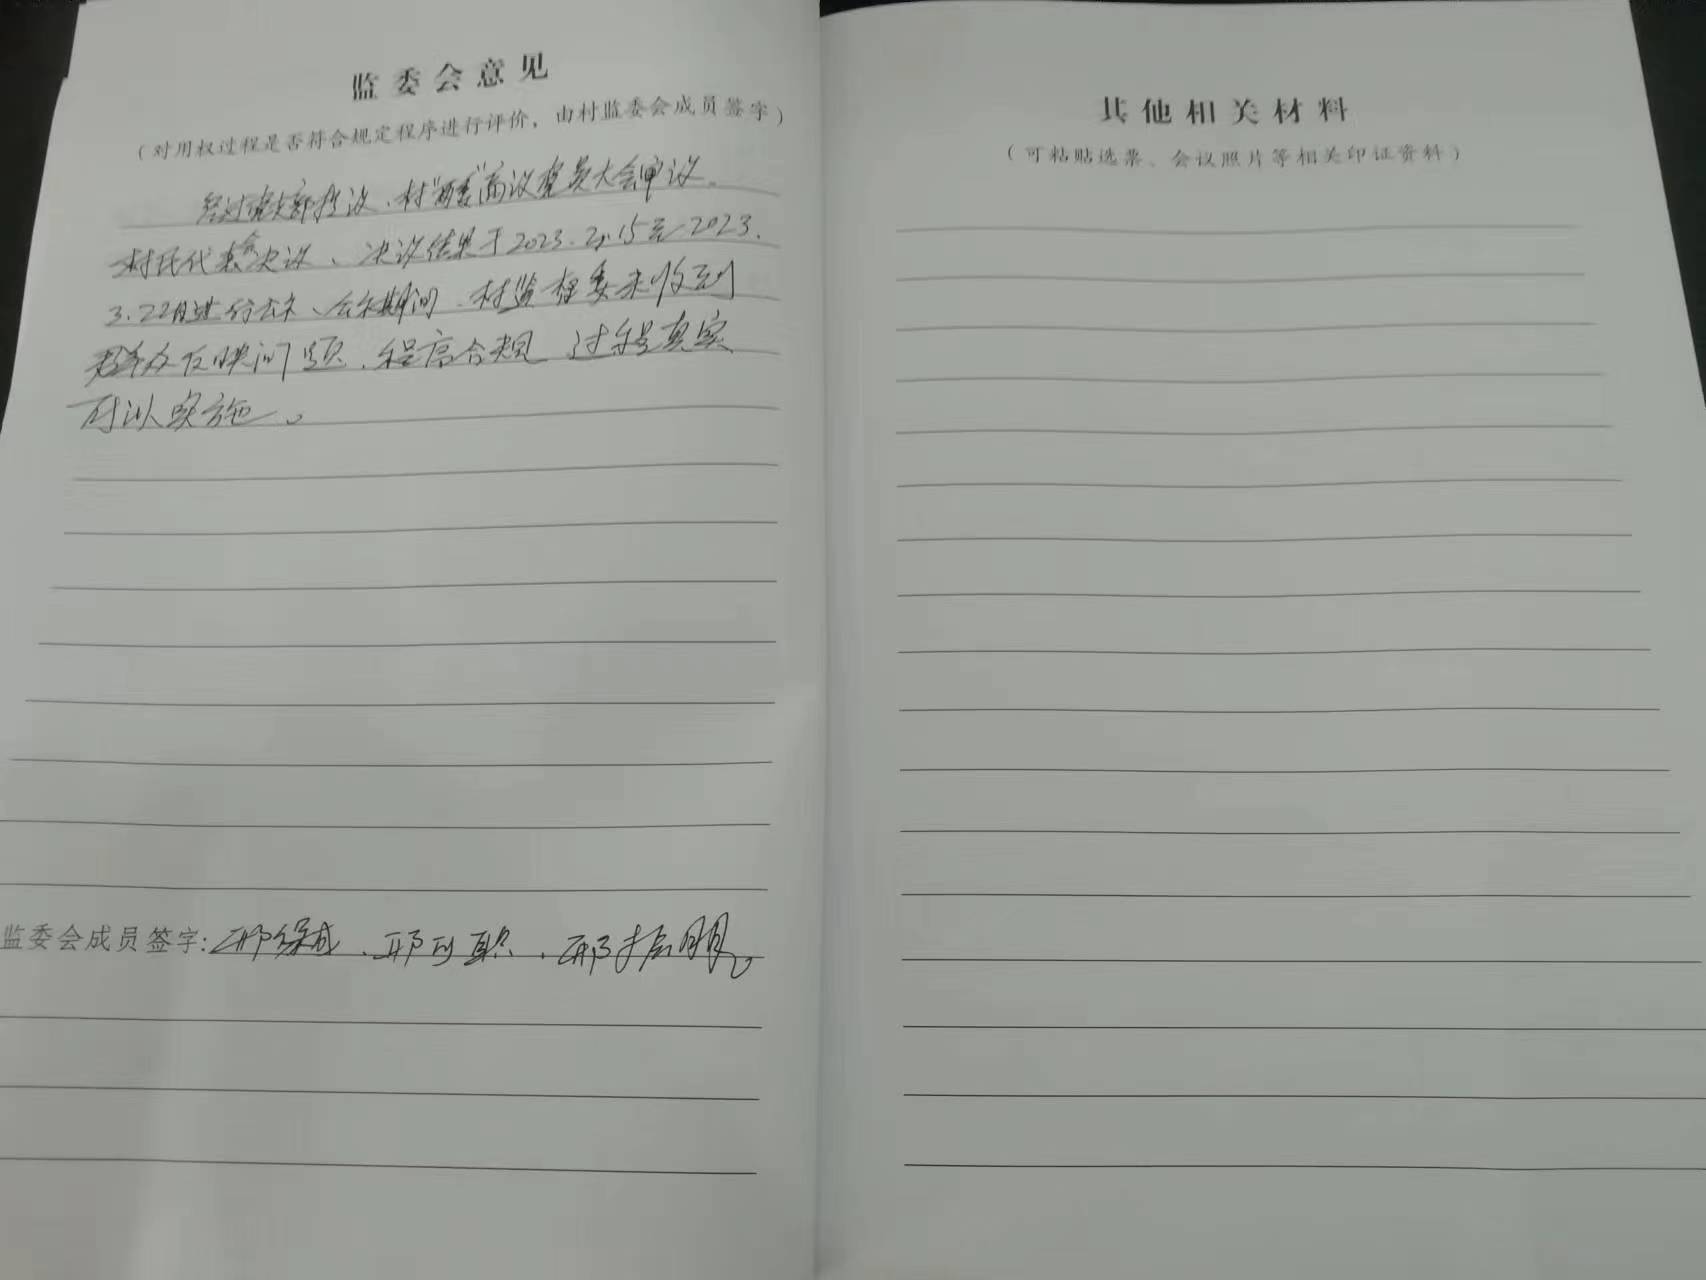 监委会意见
（对用权过程是否符合规定程序进行评价，由村监委会成员签字）
经过党支部提议、村"两委"商议党员大会审议、
村民代表会决议、决议结果于2023.2.15至2023.
3.22日进行公示、公示期间、村监督委未收到
群众反映问题、程序合规 过程真实
可以实施。
监委会成员签字: 邢保成、邢可职、邢振朋
其他相关材料
（可粘贴选票、会议照片等相关印证资料）